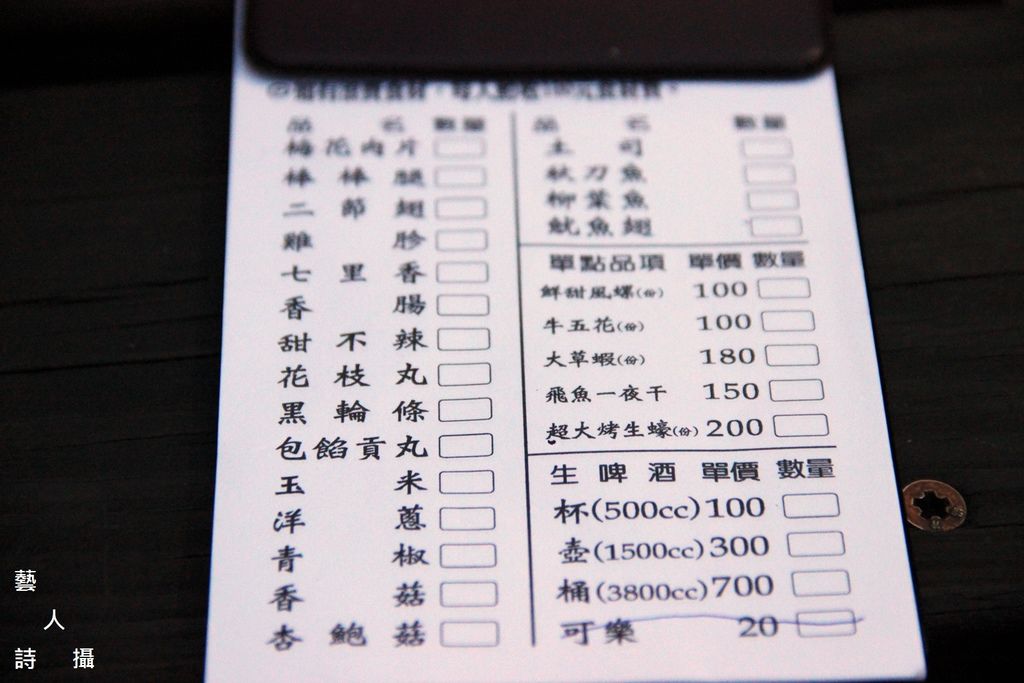 品名 數量
梅花肉片
棒棒腿
二節翅
雞胗
七里香
香腸
甜不辣
花枝丸
黑輪條
包餡貢丸
玉米
洋蔥
青椒
香菇
杏鮑菇
品名 數量
土司
秋刀魚
柳葉魚
魷魚翅
單點品項 單價 數量
鮮甜風螺(份) 100
牛五花(份) 100
大草蝦(份) 180
飛魚一夜干 150
超大烤生蠔(份) 200
生啤酒 單價 數量
杯(500cc) 100
壺(1500cc) 300
桶(3800cc) 700
可樂 20
藝人詩攝